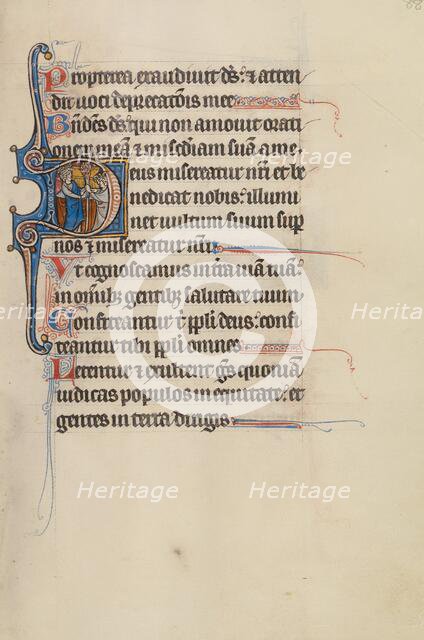 Propterea exaudivit ds: & atten
dit voci deprecatois mee
Bndcs ds: qui non amovit orati
onem meā & mīsdiam suā a me.
Deus misereatur nri et be
nedicat nobis: illumi
net vultum suum sup
nos & misereatur nri.
Vt cognoscamus in tra viam tuā:
in omibz gentibz salutare tuum
Confiteantur t ppli deus: confi
teantur tibi ppli omnes
Letentur & exultent gs quoniā
iudicas populos in equitate: et
gentes in terra dirigis.
68
Heritage Heritage
Heritage Heritage Heritage
Heritage Heritage